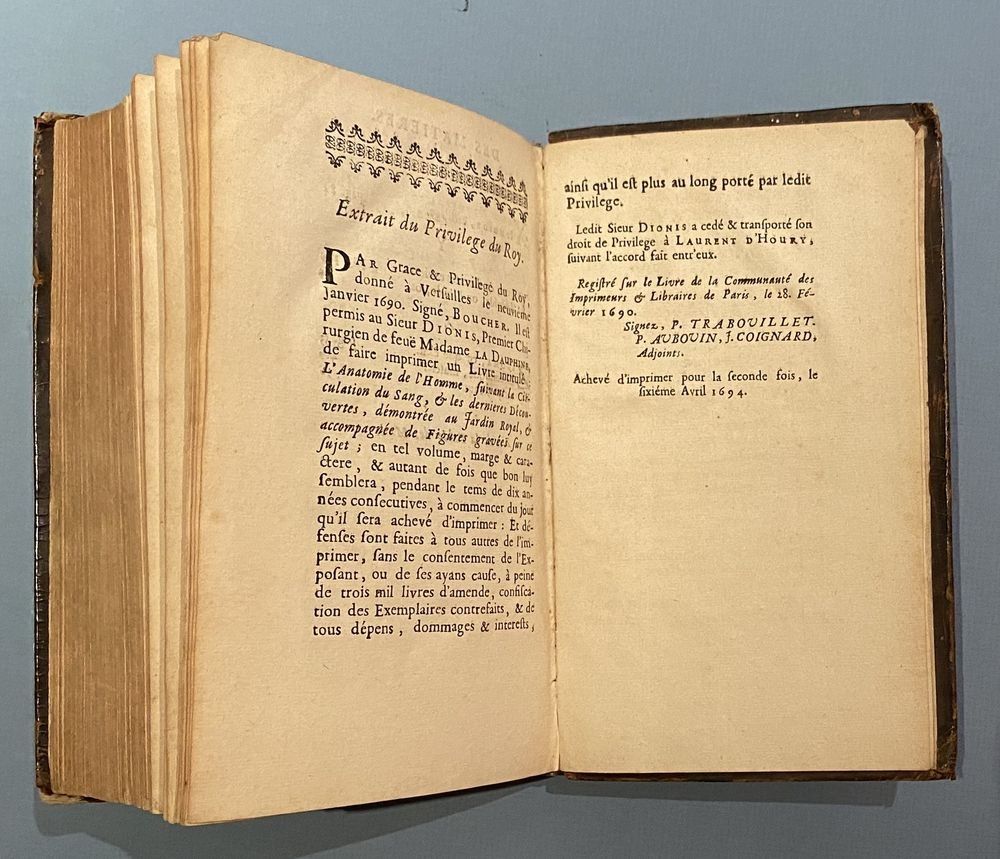 Extrait du Privilege du Roy.
PAR Grace & Privilege du Roy,
donné à Versailles le neuviéme
Janvier 1690. Signé, BOUCHER. Il est
permis au Sieur DIONIS, Premier Chi-
rurgien de feuë Madame LA DAUPHINE,
de faire imprimer un Livre intitulé
L'Anatomie de l'Homme, suivant la Cir-
culation du Sang, & les dernieres Décou-
vertes, démontrée au Jardin Royal, &
accompagnée de Figures gravées sur ce
sujet ; en tel volume, marge & cara-
ctere, & autant de fois que bon luy
semblera, pendant le tems de dix an-
nées consecutives, à commencer du jour
qu'il sera achevé d'imprimer : Et dé-
fenses sont faites à tous autres de l'im-
primer, sans le consentement de l'Ex-
posant, ou de ses ayans cause, à peine
de trois mil livres d'amende, confisca-
tion des Exemplaires contrefaits, & de
tous dépens, dommages & interests,
ainsi qu'il est plus au long porté par ledit
Privilege.
Ledit Sieur DIONIS a cedé & transporté son
droit de Privilege à LAURENT D'HOURY,
suivant l'accord fait entr'eux.
Registré sur le Livre de la Communauté des
Imprimeurs & Libraires de Paris, le 28. Fé-
vrier 1690.
Signez, P. TRABOUILLET.
P. AUBOUIN, J. COIGNARD,
Adjoints.
Achevé d'imprimer pour la seconde fois, le
sixiéme Avril 1694.